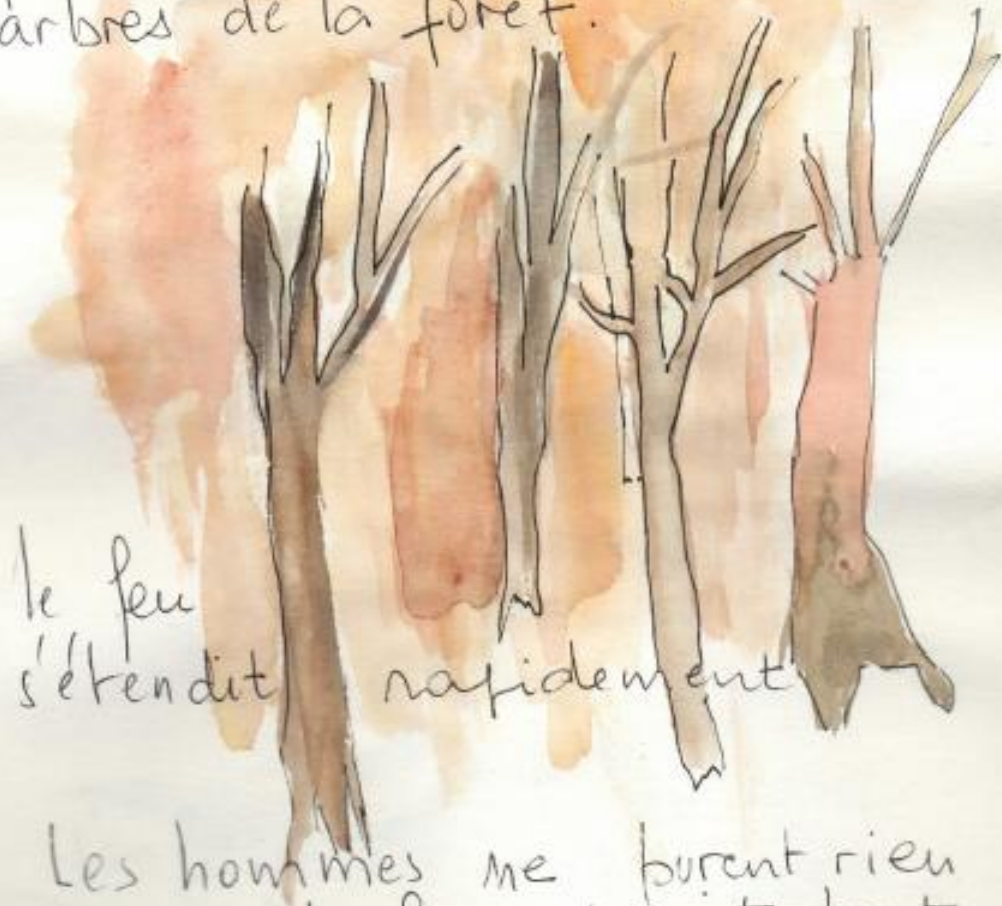 arbres de la forêt.
le feu
s'étendit rapidement
Les hommes ne purent rien